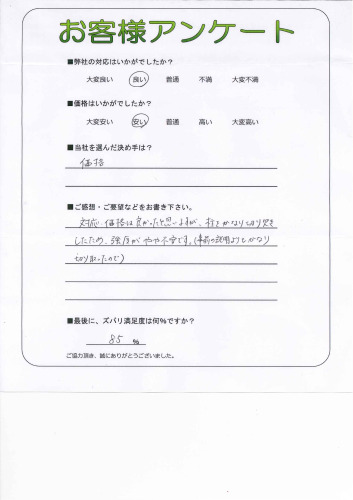 お客様アンケート
■弊社の対応はいかがでしたか？
大変良い 良い 普通 不満 大変不満
■価格はいかがでしたか？
大変安い 安い 普通 高い 大変高い
■当社を選んだ決め手は？
価格
■ご感想・ご要望などをお書き下さい。
対応、価格は良かったと思いますが、柱をかなり切り欠き
したため、強度がやや不安です。(事前の説明よりもかなり
切り取ったので)
■最後に、ズバリ満足度は何％ですか？
85 %
ご協力頂き、誠にありがとうございました。